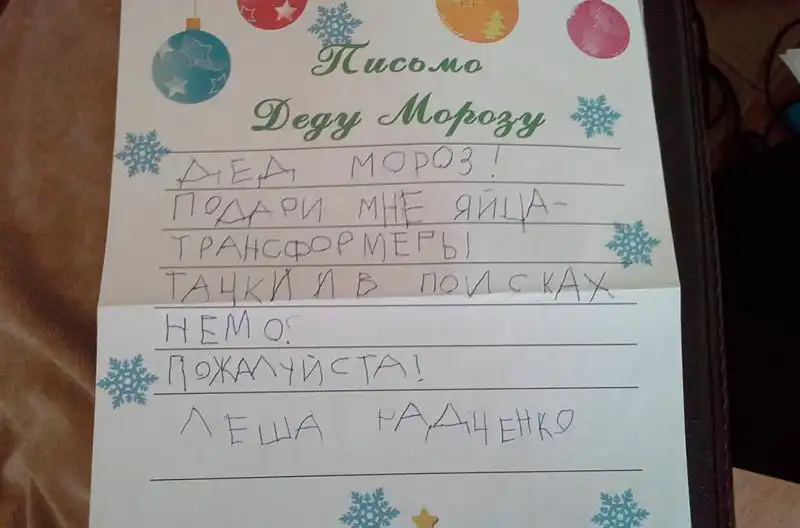 Письмо
Деду Морозу
ДЕД МОРОЗ!
ПОДАРИ МНЕ ЯЙЦА-
ТРАНСФОРМЕРЫ
ТАЧКИ И В ПОИСКАХ
НЕМО?
ПОЖАЛУЙСТА!
ЛЕША РАДЧЕНКО